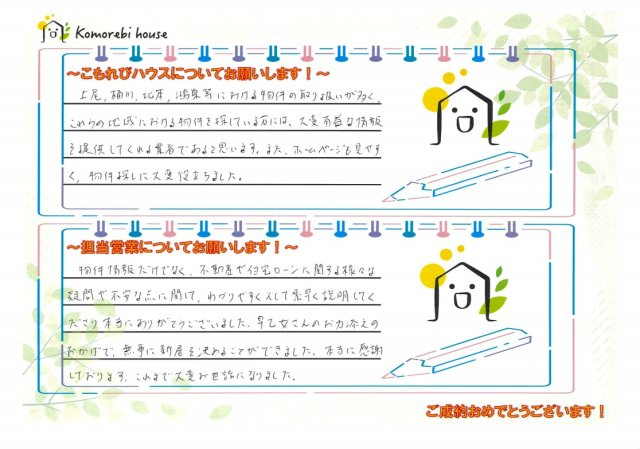 Komorebi house
～こもれびハウスについてお願いします！～
上尾,桶川,北本,鴻巣等における物件の取り扱いが多く,
これらの地域における物件を探している方には、大変有益な情報
を提供してくれる業者であると思います。また、ホームページも見やす
く、物件探しに大変役立ちました。
～担当営業についてお願いします！～
物件情報だけでなく、不動産や住宅ローンに関する様々な
疑問や不安な点に関して、わかりやすくそして素早く説明してく
ださり本当にありがとうございました。早乙女さんのお力添えの
おかげで、無事に新居を決めることができました。本当に感謝
しております。これまで大変お世話になりました。
ご成約おめでとうございます！